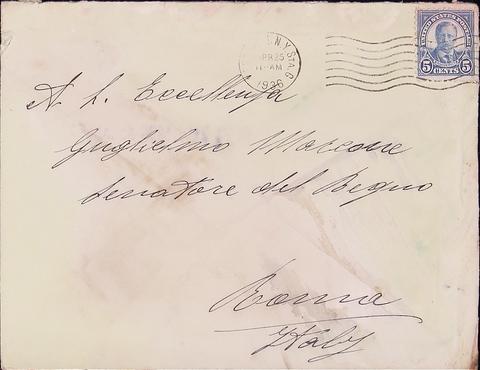 N.Y. STA. G
APR 25
11 AM
1936
UNITED STATES POSTAGE
5 CENTS 5
A S. Eccellenza
Guglielmo Marcone
Senatore del Regno
Roma
Italy